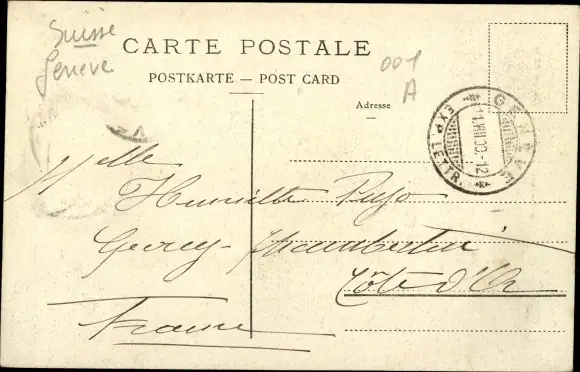 Suisse
Genève
CARTE POSTALE
001
A
POSTKARTE — POST CARD
Adresse
GENÈVE
EXP. LETTR.
Melle
Henriette
Gevrey-Chambertin
Côte d'Or
France